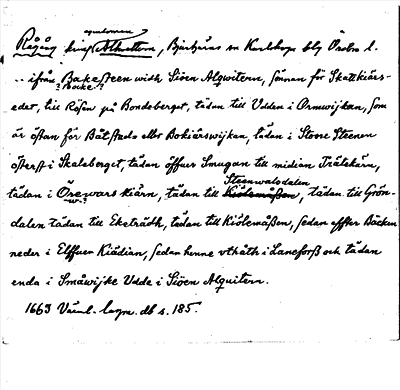 egendomen
Rågång kring Alkvettern, Bjurtjärns sn Karlskoga blg Örebro l.
.. ifrån Bakesteen widh Siöen Alqwitern, sönnan för Skattkiärs-
Backe?
edet, till Rösen på Bondeberget, tädan till Udden i Ormwijkan, som
är östan för Båtstada eller Bokiärswijkan, täden i Stoore Steenen
österst i Skaleberget, tädan öffuer Smugan till midian Trätekärn,
Steenwalsdalen
tädan i Örewars kiärn, tädan till Kiölemåßen, tädan till Grön-
w-?
dalen tädan till Eketrädh, tädan till Kiölemåßen, sedan effter Bäcken
neder i Elffuer Kiädian, sedan henne vthåth i Laneforß och tädan
enda i Småwijke Udde i Siöen Alquitern.
1663 Värml. lagm. db s. 185.